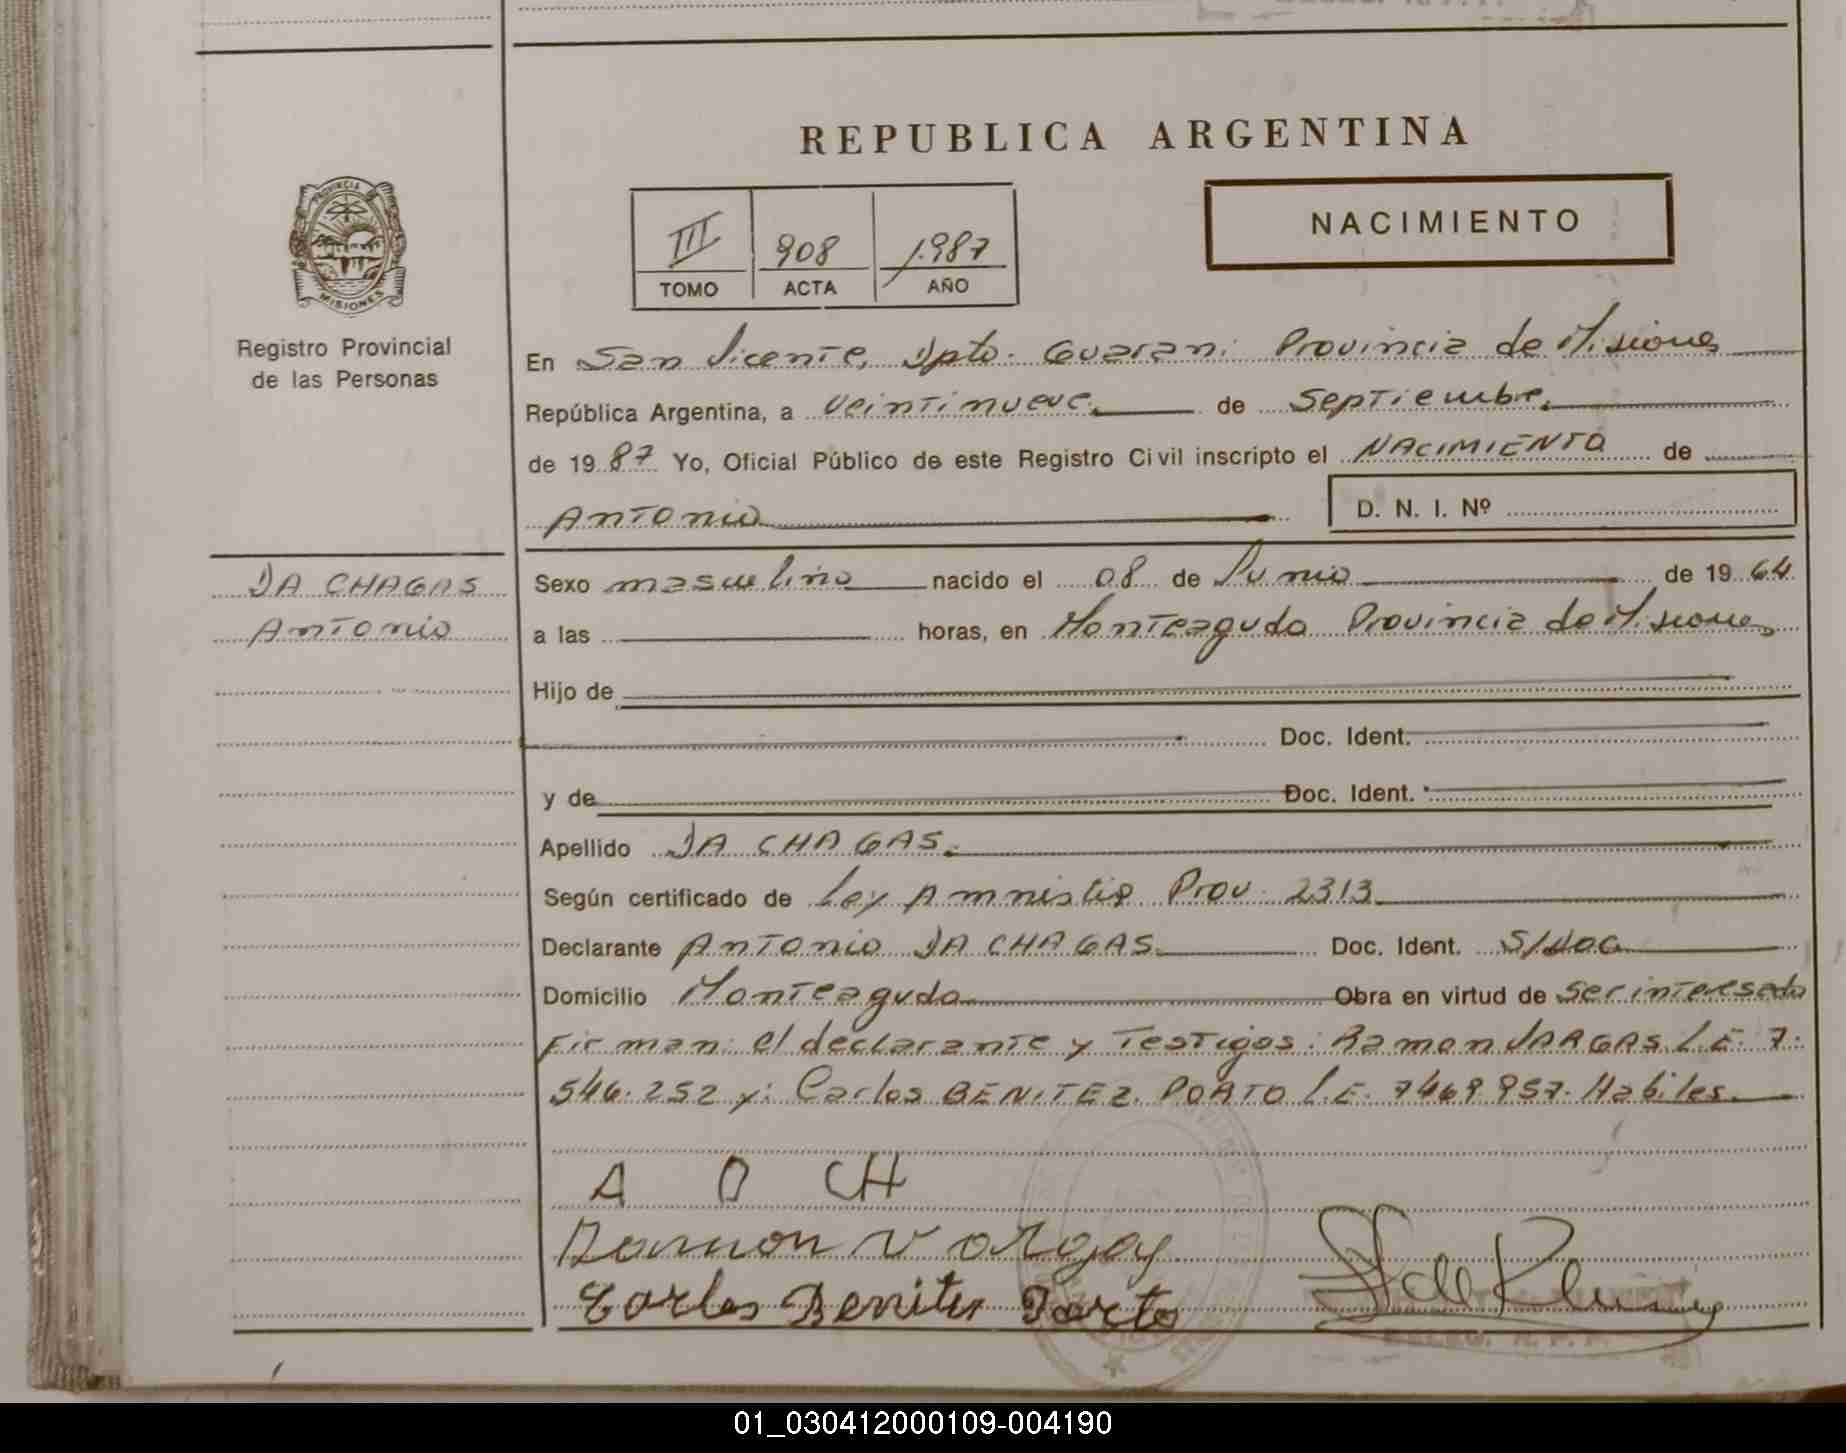 REPUBLICA ARGENTINA
PROVINCIA
MISIONES
Registro Provincial
de las Personas
III 908 1.987
TOMO ACTA AÑO
NACIMIENTO
En San Vicente, Dpto. Guarani Provincia de Misiones
República Argentina, a veintinueve de Septiembre
de 1987 Yo, Oficial Público de este Registro Civil inscripto el NACIMIENTO de
Antonio
D. N. I. Nº
DA CHAGAS
Antonio
Sexo masculino nacido el 08 de Junio de 1964
a las horas, en Monteagudo Provincia de Misiones
Hijo de
Doc. Ident.
y de Doc. Ident.
Apellido DA CHAGAS.
Según certificado de Ley Amnistia Prov. 2313
Declarante Antonio DA CHAGAS Doc. Ident. S/doc
Domicilio Monteagudo Obra en virtud de ser interesado
Firman: el declarante y Testigos: Ramon VARGAS L.E. 7.
546.252 y: Carlos BENITEZ PORTO L.E. 7469957. Habiles.
A D CH
Ramon Vargas
Carlos Benites Porto
01_030412000109-004190